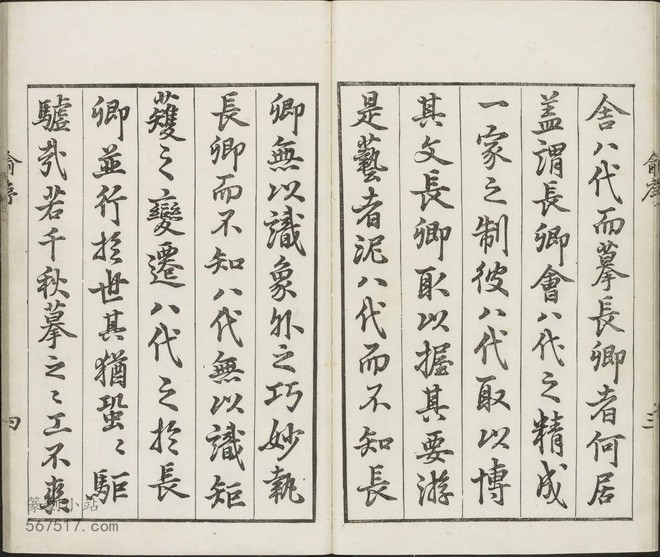 舍八代而摹長卿者何居
盖謂長卿會八代之精成
一家之制彼八代取以博
其文長卿取以握其要游
是藝者泥八代而不知長
卿無以識象外之巧妙執
長卿而不知八代無以識矩
蒦之變遷八代之於長
卿並行於世其猶蛩〻駏
驉㢤若千秋摹之〻工不爽
俞序
三
俞序
四
篆刻小站
567517.com